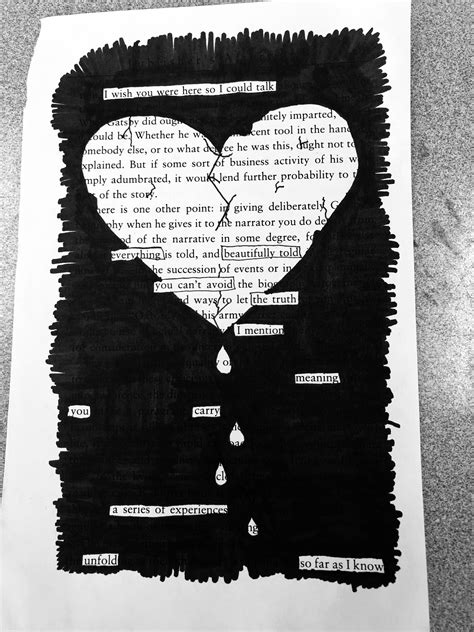 I wish you were here so I could talk
Gatsby did ough nitely imparted,
could be. Whether he wa cent tool in the hand
omebody else, or to what de e he was this, ought not to
xplained. But if some sort of business activity of his w
mply adumbrated, it would lend further probability to t
of the story.
here is one other point: in giving deliberately G
phy when he gives it to the narrator you do de
od of the narrative in some degree, fo
everything is told, and beautifully told
the succession of events or in
you can't avoid the bio
nd ways to let the truth
his army
I mention
meaning
you carry
clo
a series of experiences
ng
unfold so far as I know